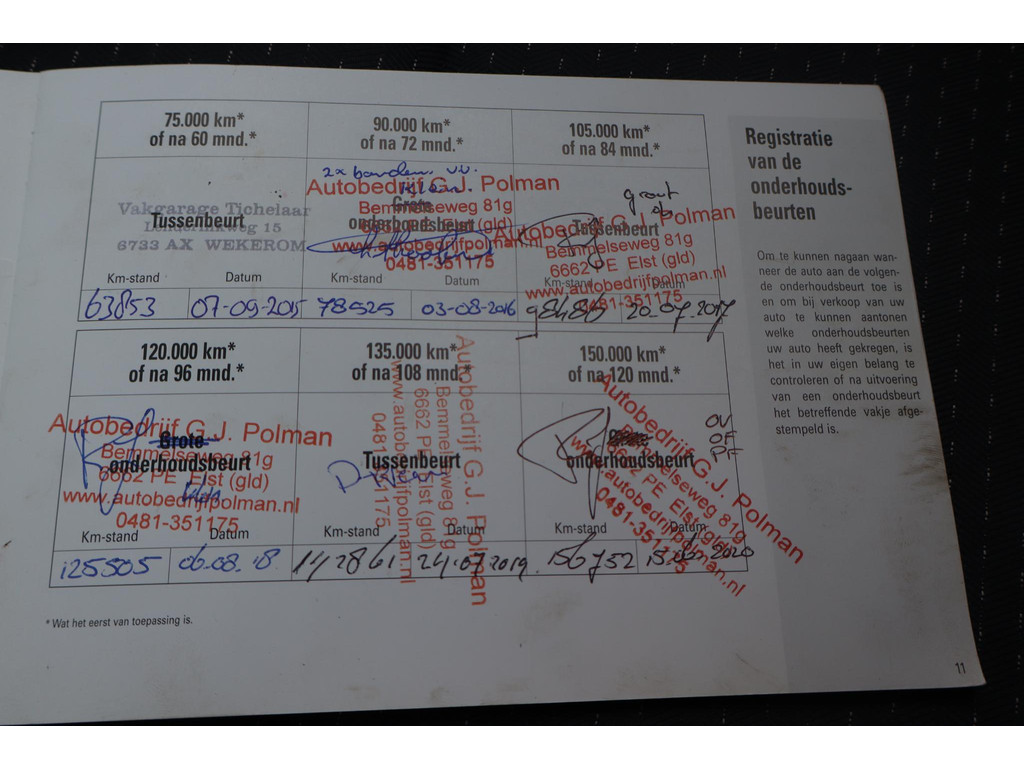 75.000 km*
of na 60 mnd.*
Vakgarage Tichelaar
Tussenbeurt
Lunterinkweg 15
6733 AX WEKEROM
Km-stand Datum
63853 07-09-2015
90.000 km*
of na 72 mnd.*
2x banden
Autobedrijf G.J. Polman
Grote
Bemmelseweg 81g
onderhoudsbeurt
6662 PE Elst (gld)
www.autobedrijfpolman.nl
0481-351175
78525 03-08-2016
105.000 km*
of na 84 mnd.*
groot
op
Autobedrijf G.J. Polman
Tussenbeurt
Bemmelseweg 81g
6662 PE Elst (gld)
www.autobedrijfpolman.nl
0481-351175
Km-stand Datum
20-07-2017
120.000 km*
of na 96 mnd.*
Autobedrijf G.J. Polman
Grote
Bemmelseweg 81g
onderhoudsbeurt
6662 PE Elst (gld)
www.autobedrijfpolman.nl
0481-351175
Km-stand Datum
125505 06.08.18
135.000 km*
of na 108 mnd.*
Autobedrijf G.J. Polman
Bemmelseweg 81g
6662 PE Elst (gld)
www.autobedrijfpolman.nl
0481-351175
Tussenbeurt
Km-stand Datum
142861 24-07-2019
150.000 km*
of na 120 mnd.*
OV
OF
PF
Autobedrijf G.J. Polman
Bemmelseweg 81g
6662 PE Elst (gld)
www.autobedrijfpolman.nl
0481-351175
Grote
onderhoudsbeurt
Km-stand Datum
156752
* Wat het eerst van toepassing is.
Registratie
van de
onderhouds-
beurten
Om te kunnen nagaan wan-
neer de auto aan de volgen-
de onderhoudsbeurt toe is
en om bij verkoop van uw
auto te kunnen aantonen
welke onderhoudsbeurten
uw auto heeft gekregen, is
het in uw eigen belang te
controleren of na uitvoering
van een onderhoudsbeurt
het betreffende vakje afge-
stempeld is.
11